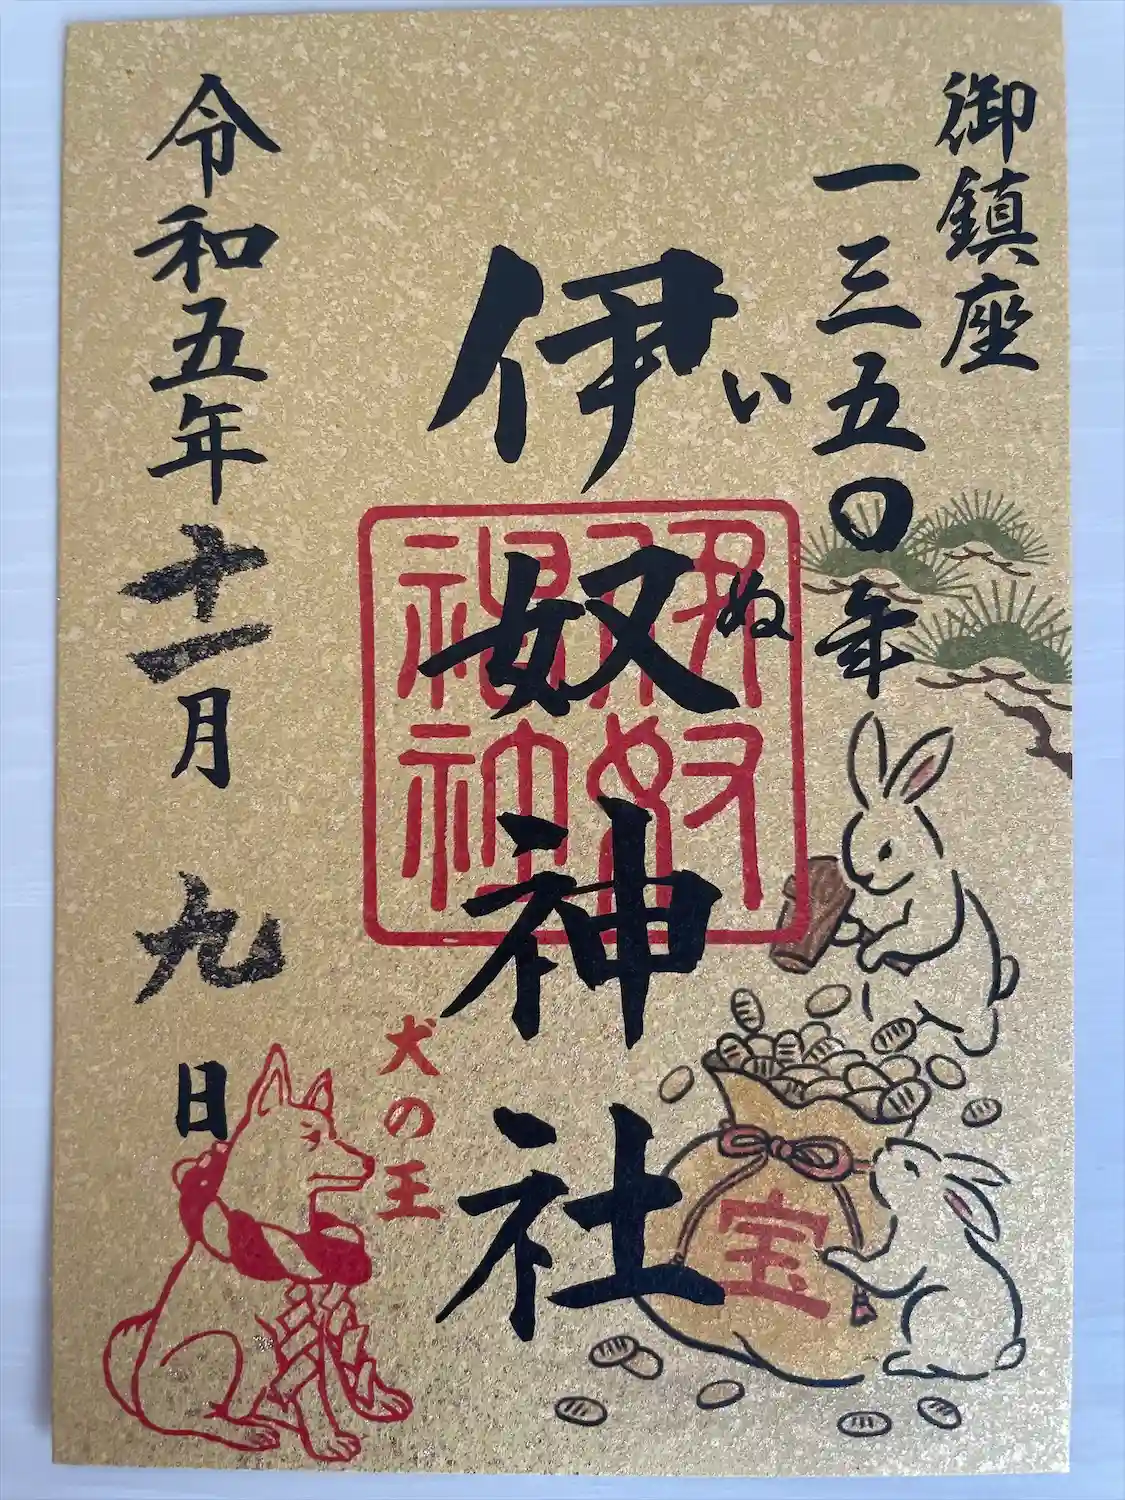 御鎮座
一三五〇年
伊奴神社
い
ぬ
伊奴
神社
宝
犬の王
令和五年十一月九日